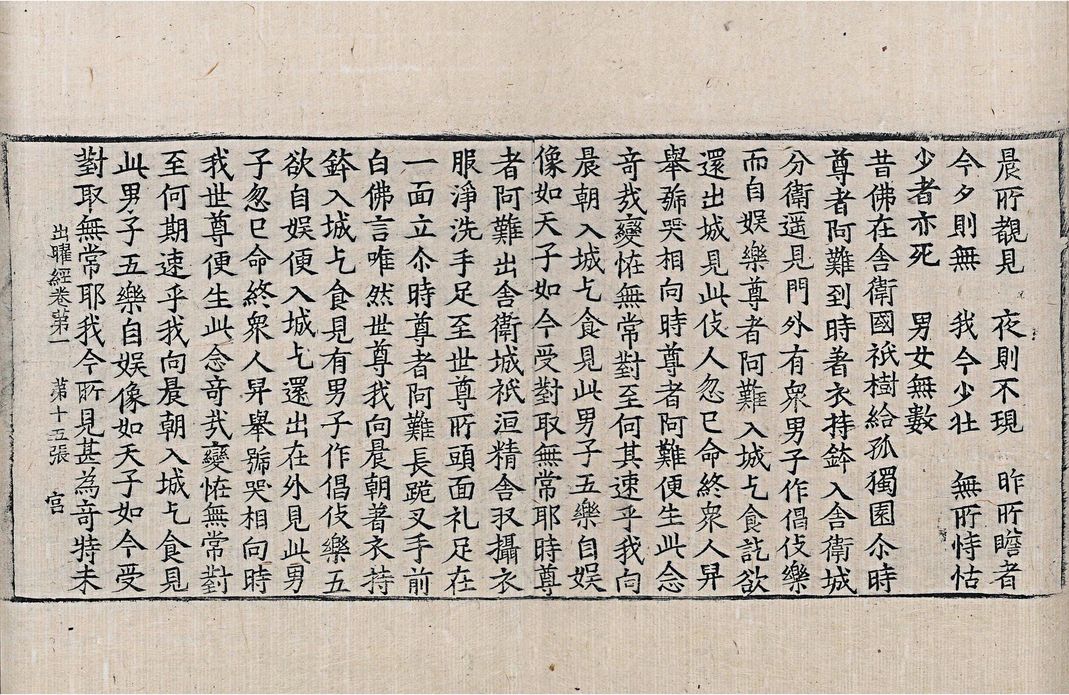 晨所覩見　夜則不現　昨所瞻者
今夕則無　我今少壮　無所恃怙
少者亦死　男女無數
昔佛在舍衛國祇樹給孤獨園尒時
尊者阿難到時著衣持鉢入舍衛城
分衛遥見門外有衆男子作倡伎樂
而自娱樂尊者阿難入城乞食訖欲
還出城見此伎人忽已命終衆人舁
舉號哭相向時尊者阿難便生此念
奇哉變恠無常對至何其速乎我向
晨朝入城乞食見此男子五樂自娱
像如天子如今受對取無常耶時尊
者阿難出舍衛城祇洹精舍収攝衣
服淨洗手足至世尊所頭面礼足在
一面立尒時尊者阿難長跪叉手前
白佛言唯然世尊我向晨朝著衣持
鉢入城乞食見有男子作倡伎樂五
欲自娱便入城乞還出在外見此男
子忽已命終衆人舁舉號哭相向時
我世尊便生此念奇哉變恠無常對
至何期速乎我向晨朝入城乞食見
此男子五樂自娱像如天子如今受
對取無常耶我今所見甚為奇特未
出曜經卷第一　第十五張　宮